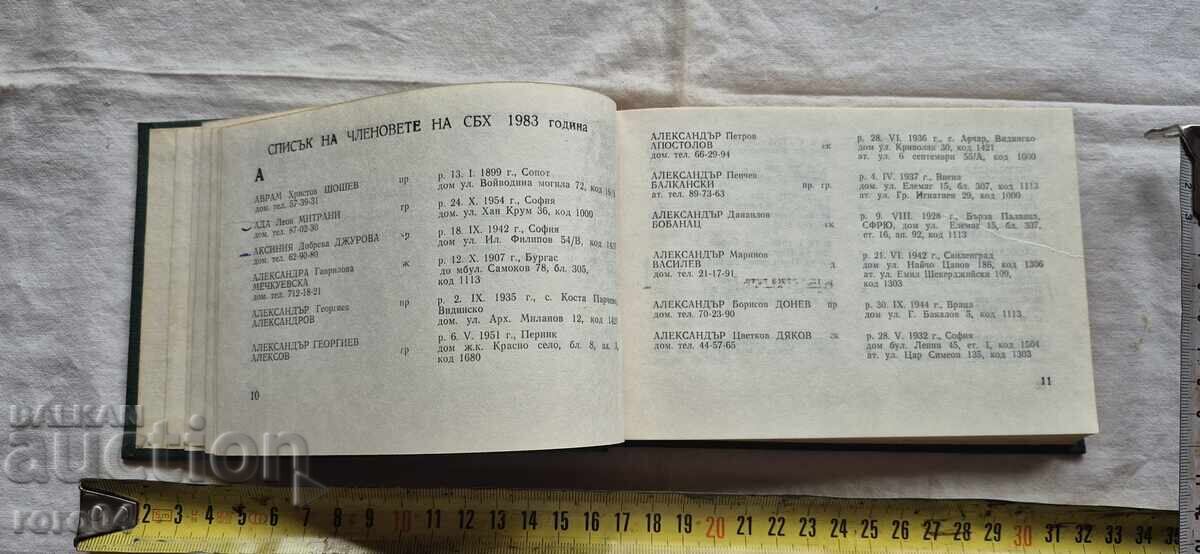 СПИСЪК НА ЧЛЕНОВЕТЕ НА СБХ 1983 година
А
АВРАМ Христов ШОШЕВ пр р. 13. I. 1899 г., Сопот
дом. тел. 57-39-31 дом ул. Войводина могила 72, код
АДА Леон МИТРАНИ гр р. 24. X. 1954 г., София
дом. тел. 87-02-30 дом. ул. Хан Крум 36, код 1000
АКСИНИЯ Добрева ДЖУРОВА р. 18. IX. 1942 г., София
дом. тел. 62-90-80 дом ул. Ил. Филипов 54/В, код
АЛЕКСАНДРА Гаврилова ж р. 12. X. 1907 г., Бургас
МЕЧКУЕВСКА до мбул. Самоков 78, бл. 305,
дом. тел. 712-18-21 код 1113
АЛЕКСАНДЪР Георгиев пр р. 2. IX. 1935 г., с. Коста Перчево,
АЛЕКСАНДРОВ Видинско
дом. ул. Арх. Миланов 12, код
АЛЕКСАНДЪР ГЕОРГИЕВ гр р. 6. V. 1951 г., Перник
АЛЕКСОВ дом ж.к. Красно село, бл. 8, ап.
код 1680
10
АЛЕКСАНДЪР Петров р. 28. VI. 1936 г., с. Арчар, Видинско
АПОСТОЛОВ ск дом ул. Криволак 30, код 1421
дом. тел. 66-29-94 ат. ул. 6 септември 55/А, код 1000
АЛЕКСАНДЪР Пенчев р. 4. IV. 1937 г., Виена
БАЛКАНСКИ пр. гр. дом ул. Елемаг 15, бл. 307, код 1113
ат. тел. 89-73-63 ат. ул. Гр. Игнатиев 29, код 1000
АЛЕКСАНДЪР Данаилов р. 9. VIII. 1928 г., Бърза Паланка,
БОБАНАЦ ск СФРЮ, дом ул. Елемаг 15, бл. 307,
ет. 16, ап. 92, код 1113
АЛЕКСАНДЪР Маринов р. 21. VI. 1942 г., Свиленград
ВАСИЛЕВ д дом ул. Найчо Цанов 186, код 1306
дом. тел. 21-17-91 ат. ул. Емил Шекерджийски 109,
код 1303
АЛЕКСАНДЪР Борисов ДОНЕВ пр р. 30. IX. 1944 г., Враца
дом. тел. 70-23-90 дом ул. Г. Бакалов 5, код 1113
АЛЕКСАНДЪР Цветков ДЯКОВ ск р. 28. V. 1932 г., София
дом. тел. 44-57-65 дом бул. Ленин 45, ет. 1, код 1504
ат. ул. Цар Симеон 135, код 1303
11
БАЛКАН
auction
roro94
2 3 4 5 6 7 8 9 10 11 12 13 14 15 16 17 18 19 20 21 22 23 24 25 26 27 28 29 30 31 32 33 34 35